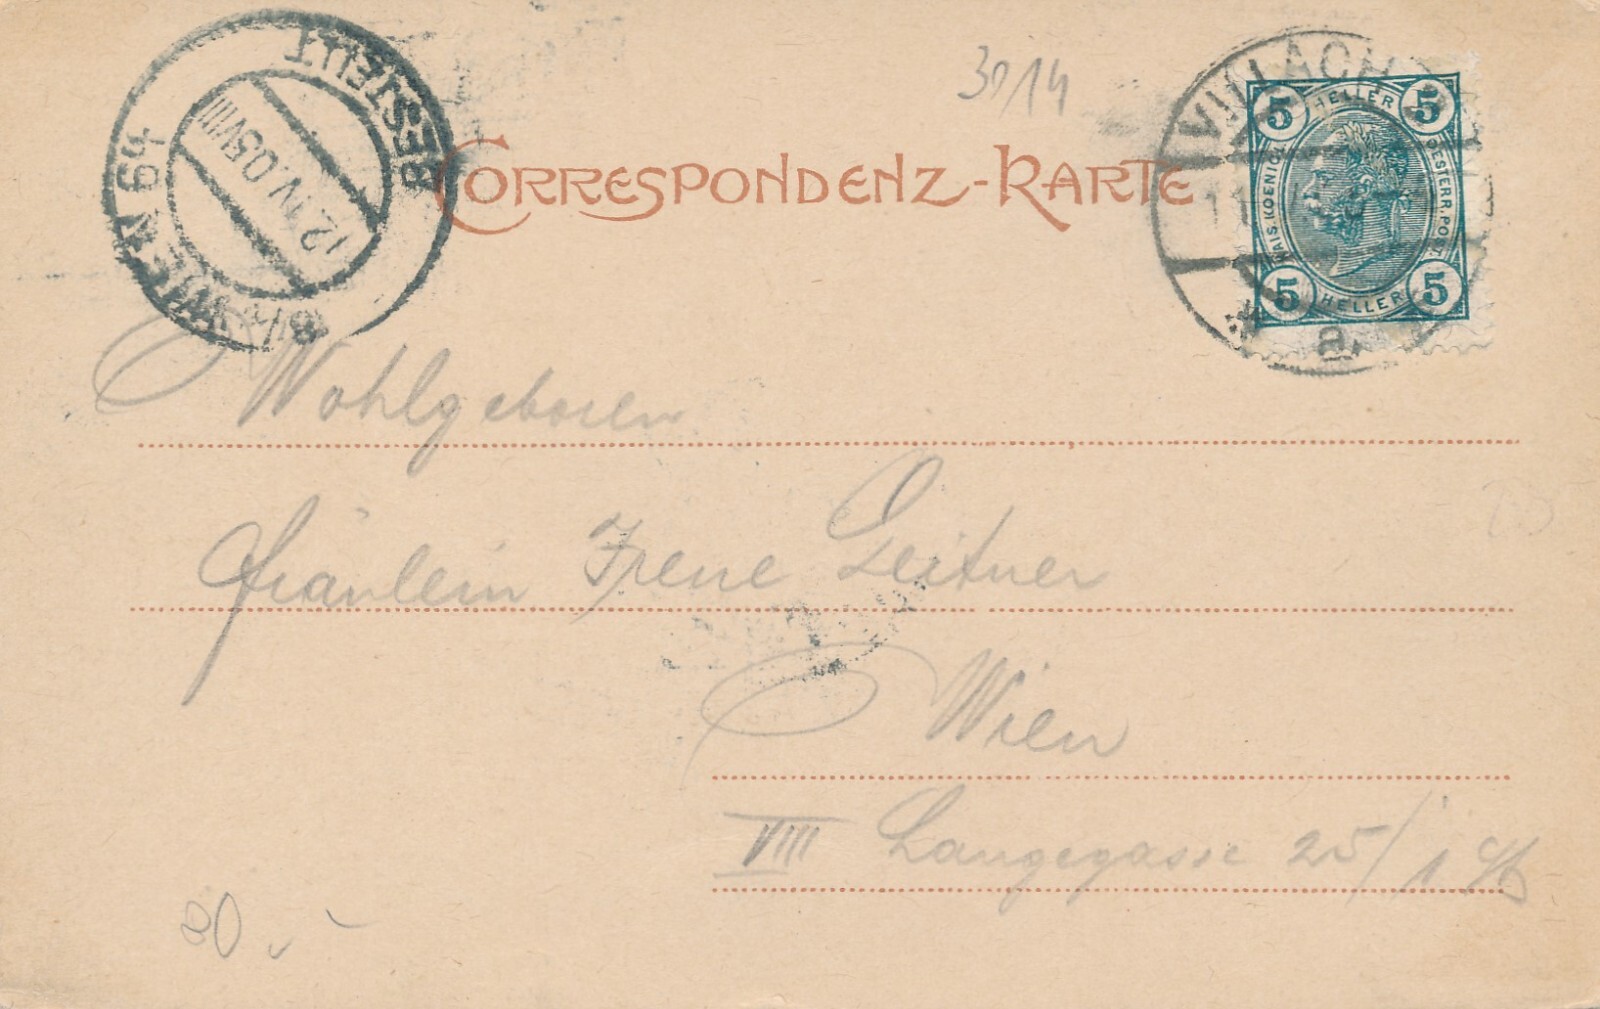 3014
CORRESPONDENZ-KARTE
BESTELLT
WIEN 64
12.IV.05 VIII
VILLACH
11
a.
5 HELLER 5
KAIS. KOENIGL.
OESTERR. POST
5 HELLER 5
Wohlgeboren
Fräulein Irene Leitner
Wien
VIII Langegasse 25/1
80.-